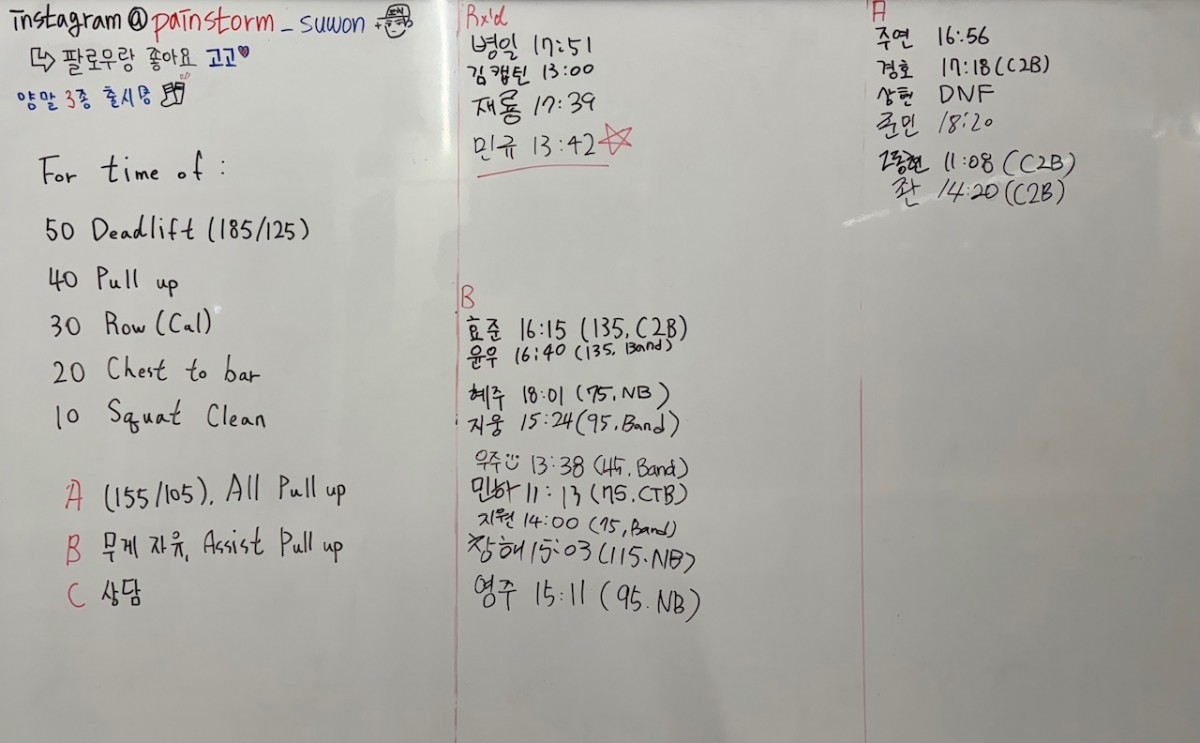 instagram@painstorm_suwon
팔로우랑 좋아요 고고
양말 3종 출시중
For time of :
50 Deadlift (185/125)
40 Pull up
30 Row (Cal)
20 Chest to bar
10 Squat Clean
A (155/105), All Pull up
B 무게 자유, Assist Pull up
C 상담
Rx'd
병일 17:51
김캡틴 13:00
재룡 17:39
민규 13:42
B
효준 16:15 (135, C2B)
윤우 16:40 (135, Band)
혜주 18:01 (75, NB)
지웅 15:24 (95, Band)
우주 13:38 (45, Band)
민하 11:13 (75, CTB)
지원 14:00 (75, Band)
창해 15:03 (115, NB)
영주 15:11 (95, NB)
A
주연 16:56
경호 17:18 (C2B)
상현 DNF
준민 18:20
11:08 (C2B)
좐 14:20 (C2B)